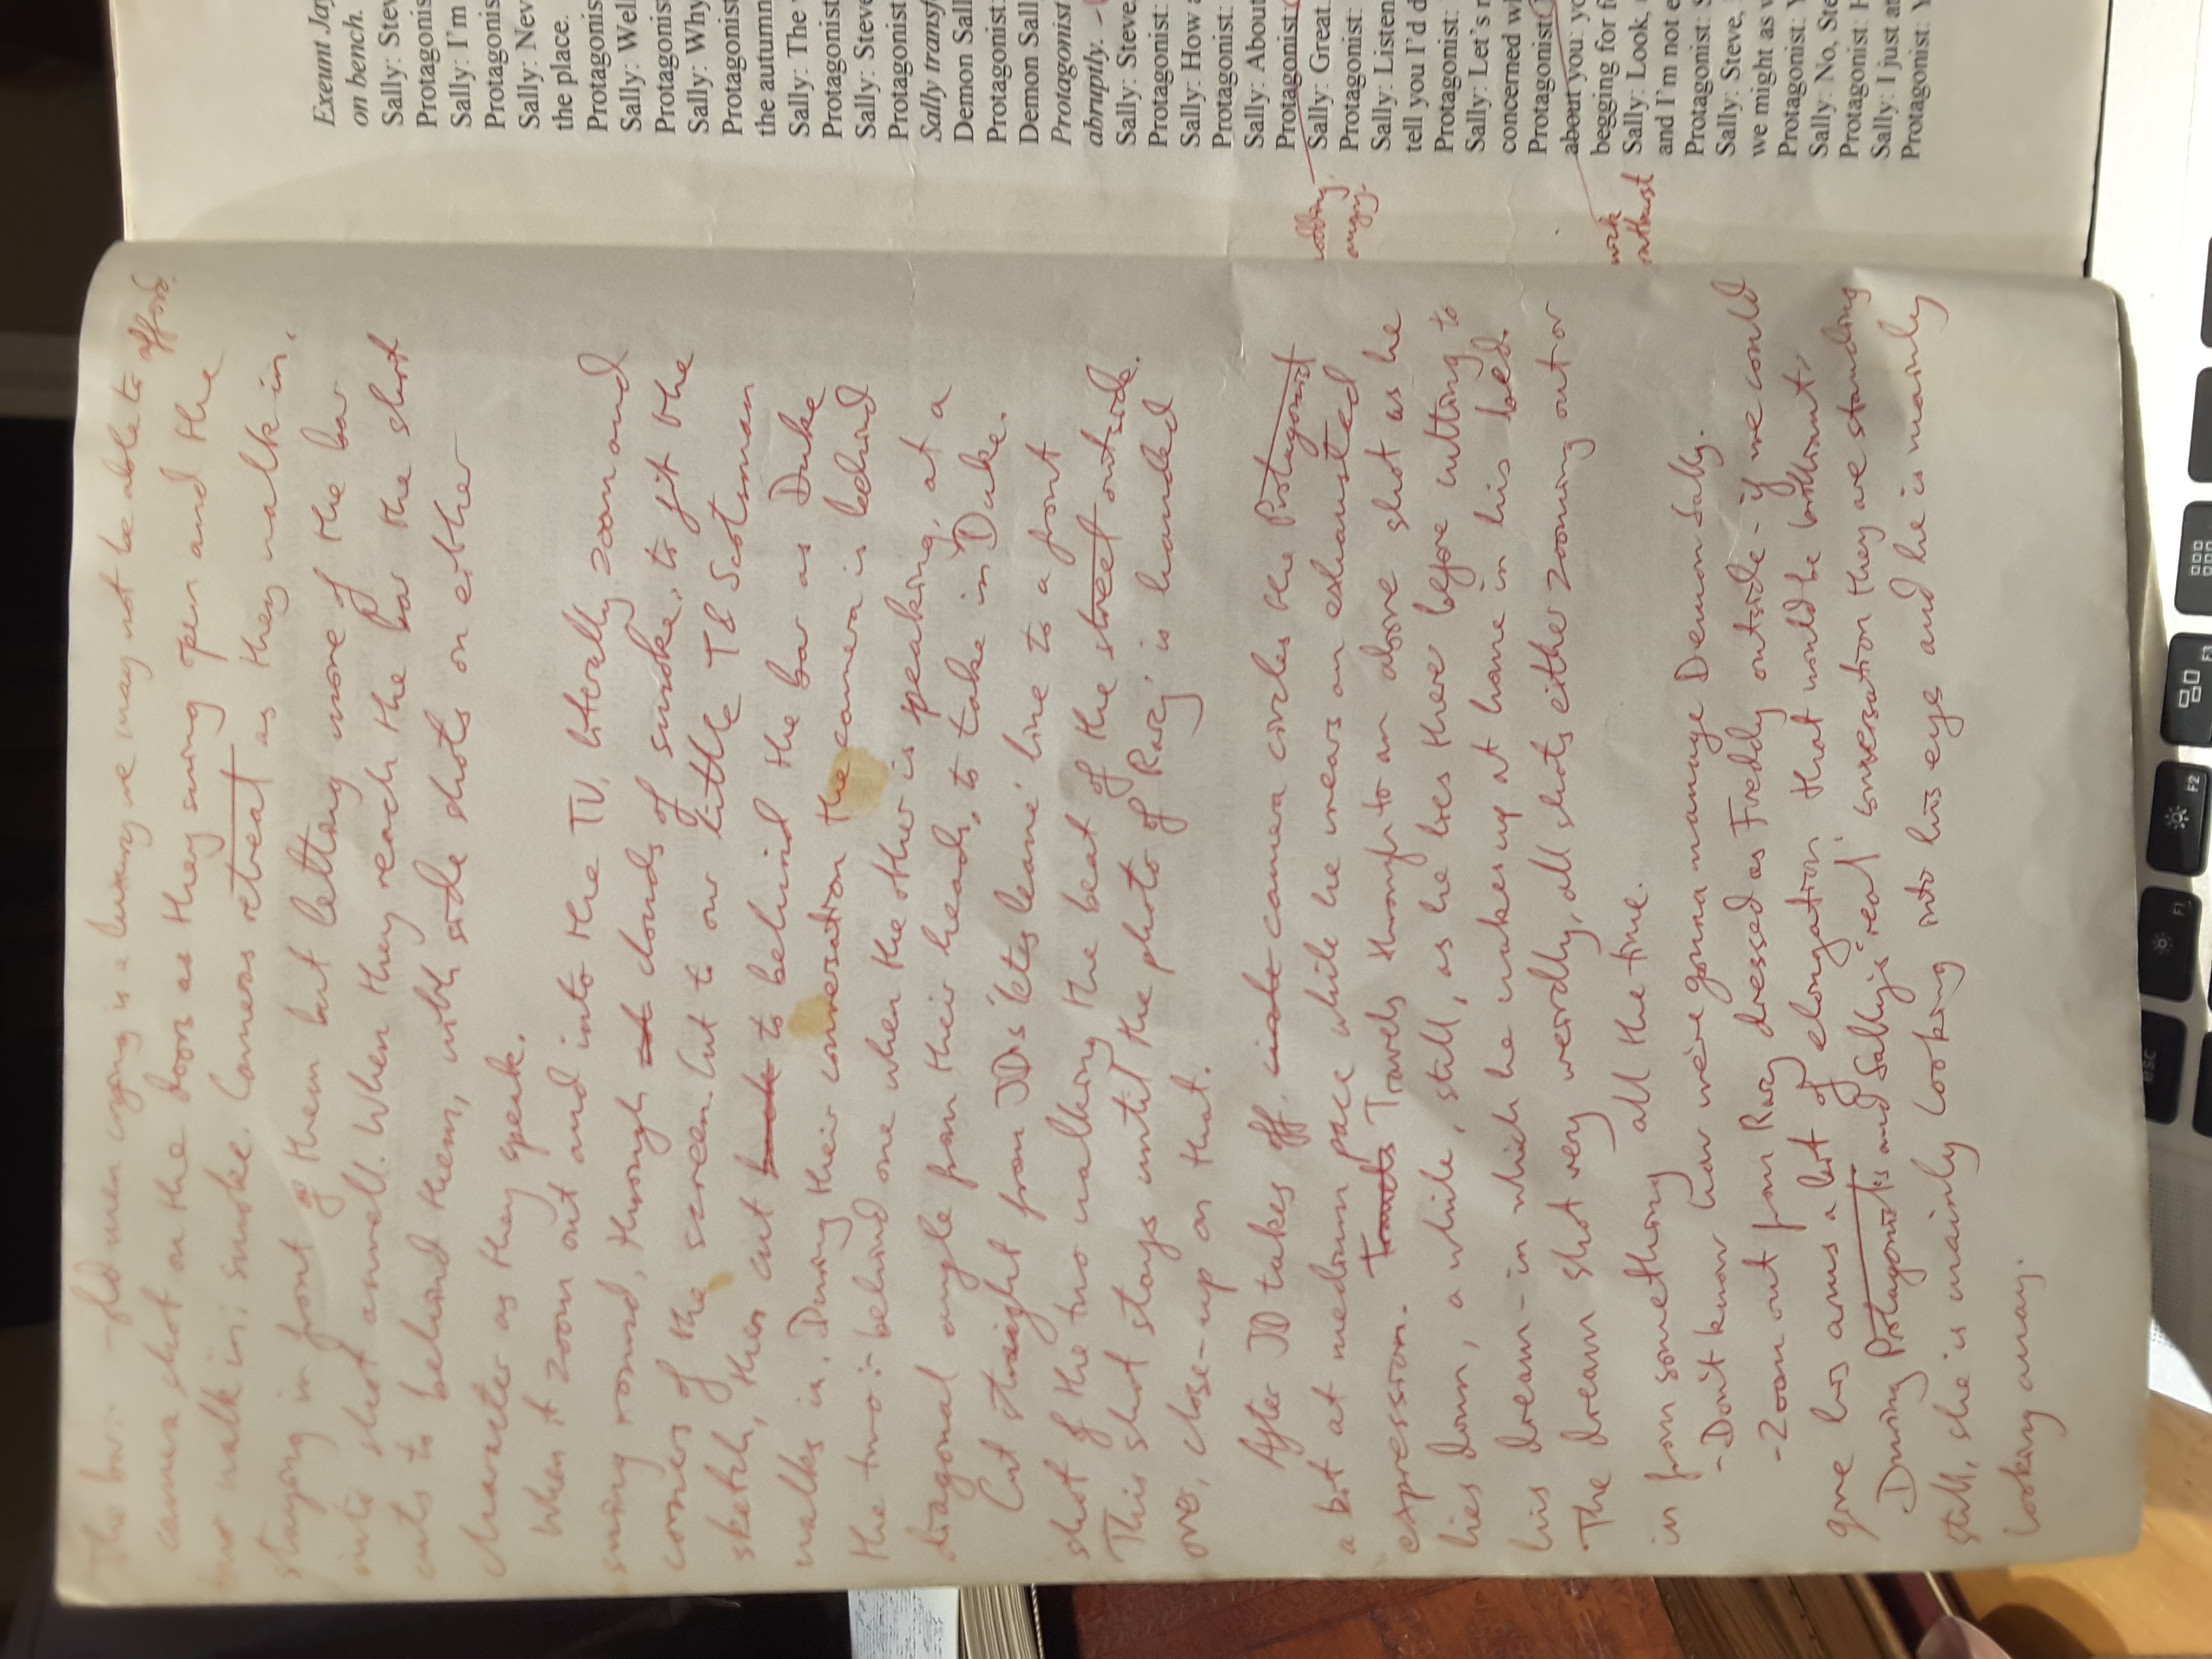 The bar:- - Old men crying is a luxury we may not be able to afford.
camera shot on the doors as they swing open and the
two walk in; smoke. Cameras retreat as they walk in,
staying in front of them but letting more of the bar
into shot aswell. When they reach the bar the shot
cuts to behind them, with side shots on either
character as they speak.
When it zoom out and into the TV, literally zoom and
swing round, through clouds of smoke, to fit the
corners of the screen. Cut to our little T& Scotsman
sketch, then cut back to behind the bar as Duke
walks in. During their conversation the camera is behind
the two:- behind one when the other is speaking, at a
diagonal angle from their heads, to take in Duke.
Cut straight from JD's 'lets leave' line to a front
shot of the two walking the beat of the street outside.
This shot stays until the photo of Razj is handed
over, close-up on that.
After JD takes off, circle camera circles the Protagonist
a bit at medium pace while he wears an exhausted
expression. Travels Travels through to an above shot as he
lies down, a while, still, as he lies there before cutting to
his dream - in which he wakes up at home in his bed.
The dream shot very weirdly, all shots either zooming out or
in from something all the time.
- Don't know how we're gonna manage Demon Sally.
- Zoom out from Razj dressed as Freddy outside - if we could
give his arms a bit of elongation that would be brilliant.
During Protagonist's and Sally's 'real' conversation they are standing
still, she is mainly looking into his eye and he is mainly
looking away.
Exeunt Jay
on bench.
Sally: Stev
Protagonis
Sally: I'm
Protagonis
Sally: Nev
the place.
Protagonis
Sally: Well
Protagonist
Sally: Why
Protagonist
the autumn
Sally: The
Protagonist
Sally: Steve
Protagonist
Sally transf
Demon Sall
Protagonist:
Demon Sall
Protagonist
abruptly.
Sally: Steve
Protagonist:
Sally: How a
Protagonist:
Sally: About
Protagonist:
nodding,
Sally: Great.
angry.
Protagonist:
Sally: Listen
tell you I'd d
Protagonist:
Sally: Let's r
concerned wh
Protagonist:
about you: yo
begging for f
outburst
Sally: Look,
and I'm not e
Protagonist: S
Sally: Steve,
we might as w
Protagonist: Y
Sally: No, Ste
Protagonist: H
Sally: I just at
Protagonist: Y
esc
F1
F2
F3